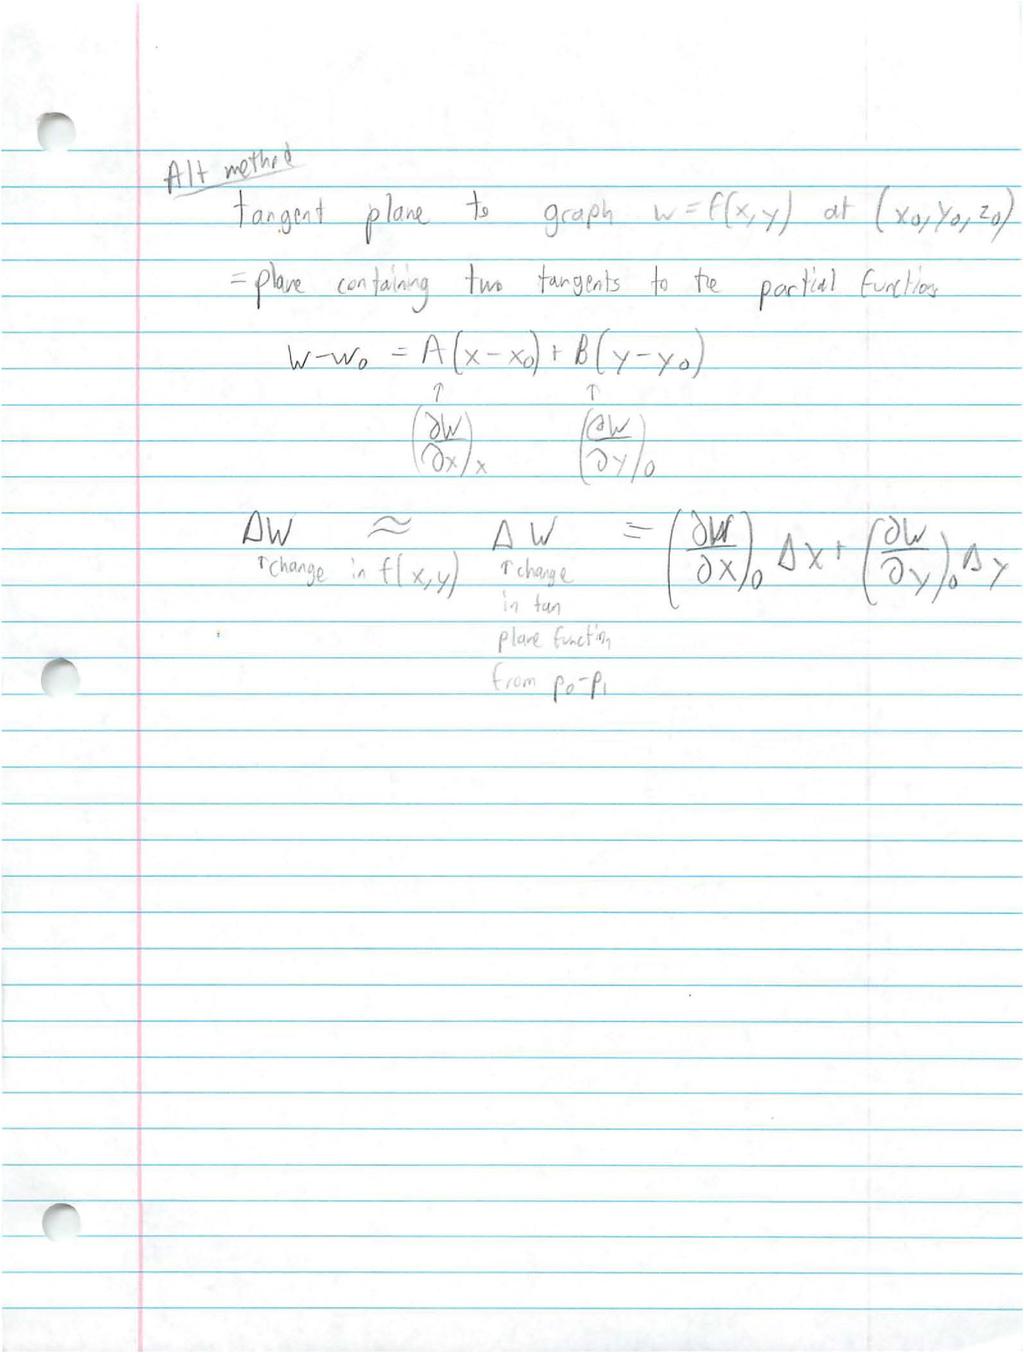 Alt method
tangent plane to graph w = f(x, y) at (x₀, y₀, z₀)
= plane containing two tangents to the partial functions
w - w₀ = A(x - x₀) + B(y - y₀)
↑ ↑
(∂w/∂x)ₓ (∂w/∂y)₀
Δw ≈ Δw = (∂w/∂x)₀ Δx + (∂w/∂y)₀ Δy
↑change in f(x, y) ↑change
in tan
plane function
from p₀-p₁